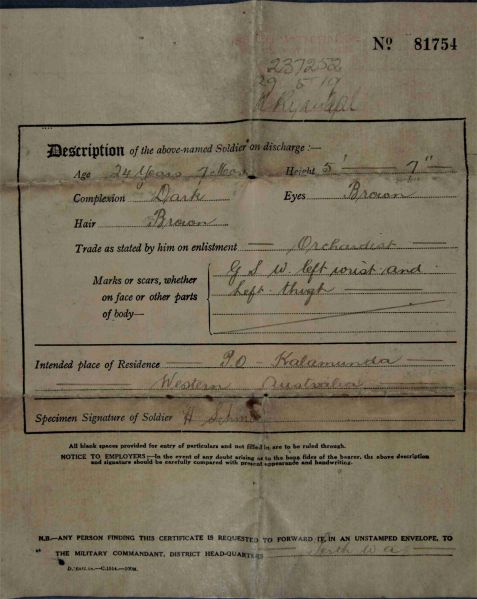 No 81754
237252
29 5 19
Description of the above-named Soldier on discharge:—
Age 24 Years 7 Mos Height 5' 7"
Complexion Dark Eyes Brown
Hair Brown
Trade as stated by him on enlistment — Orchardist —
Marks or scars, whether on face or other parts of body— G S W. left wrist and
left thigh —
Intended place of Residence P.O — Kalamunda —
Western Australia
Specimen Signature of Soldier H
All blank spaces provided for entry of particulars and not filled in are to be ruled through.
NOTICE TO EMPLOYERS—In the event of any doubt arising as to the bona fides of the bearer, the above description
and signature should be carefully compared with present appearance and handwriting.
N.B.—ANY PERSON FINDING THIS CERTIFICATE IS REQUESTED TO FORWARD IT, IN AN UNSTAMPED ENVELOPE, TO
THE MILITARY COMMANDANT, DISTRICT HEAD-QUARTERS Perth W A